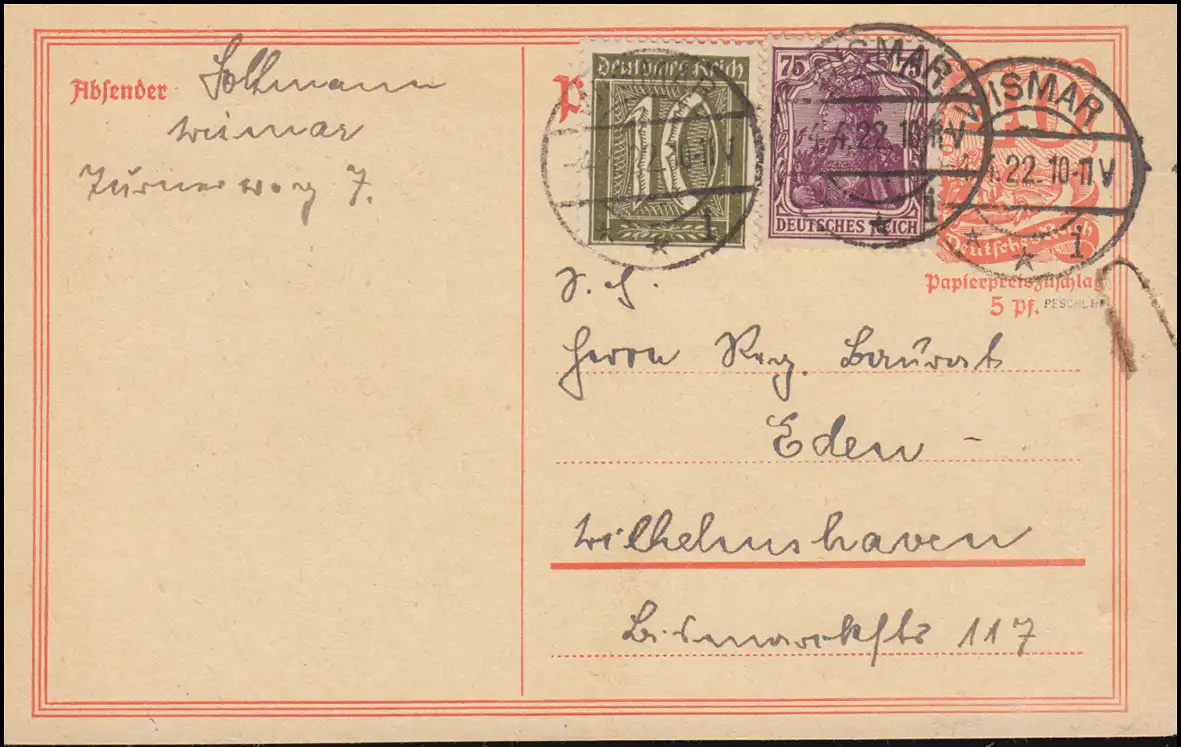 Absender Soltmann
Wismar
Turnerweg 7.
Deutsches Reich
10
75 75
DEUTSCHES REICH
WISMAR
22.10-11V
* 1
ISMAR
4.4.22.10-11V
* 1
ISMAR
4.22.10-11V
* * 1
40
Deutsches Reich
Papierpreiszuschlag
5 Pf. PESCHL
S. H.
Herrn Reg. Baurat
Eden -
Wilhelmshaven
Bismarckstr 117